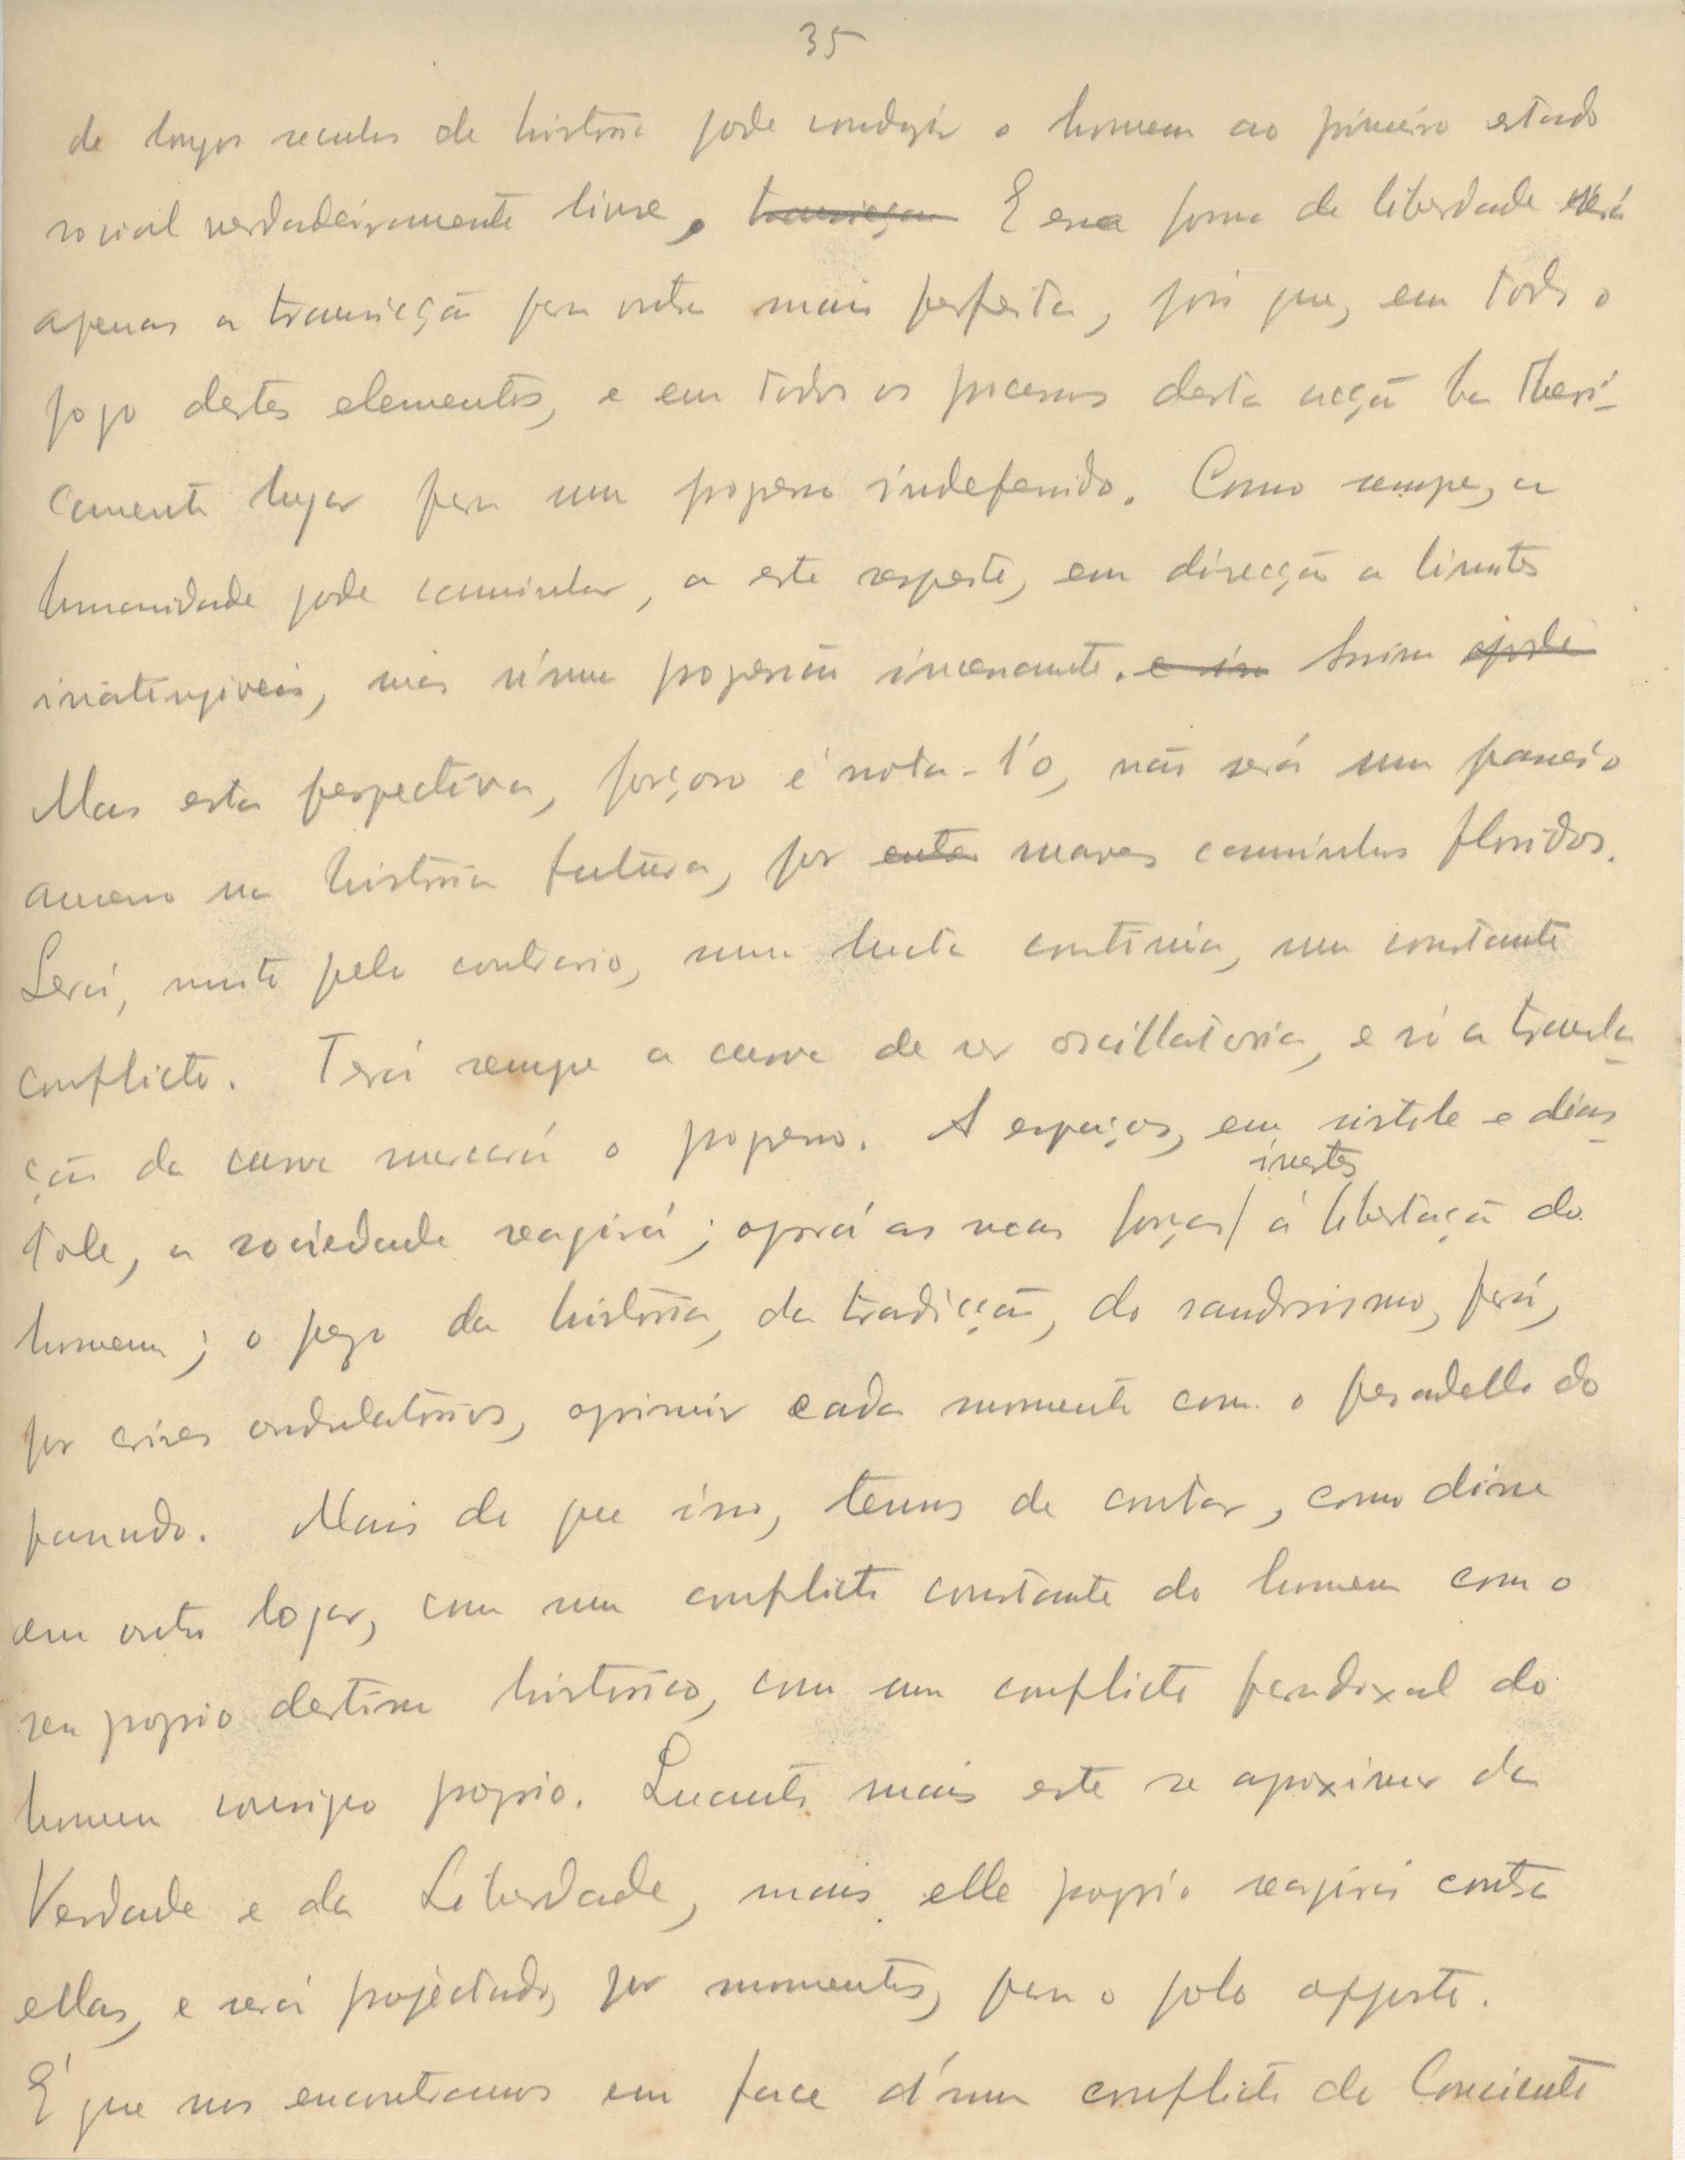 35
de longos seculos de historia pode conduzir o homem ao primeiro estado
social verdadeiramente livre. E essa forma de liberdade será
apenas a transicção para outra mais perfeita, pois que, em todo o
jogo destes elementos, e em todos os processos desta acção ha theori-
camente lugar para um progresso indefenido. Como sempre, a
humanidade pode caminhar, a este respeito, em direcção a limites
inatingiveis, mas n'uma progressão incessante. e isso Assim
Mas esta perspectiva, forçoso é nota-l'o, não será um passeio
ameno na historia futura, por suaves caminhos floridos.
Será, muito pelo contrario, uma lucta continua, um constante
conflicto. Terá sempre a curva de ser oscillatoria, e só a transla-
ção da curva marcará o progresso. A espaços, em sistole e dias-
tole, a sociedade reagirá; oporá as suas forças inertes á libertação do
homem; o pezo da historia, da tradicção, do saudosismo, fará,
por crises ondulatorias, oprimir cada momento com o pesadello do
passado. Mais do que isso, temos de contar, como disse
em outro logar, com um conflicto constante do homem com o
seu proprio destino historico, com um conflicto paradoxal do
homem comsigo proprio. Quanto mais este se aproximar da
Verdade e da Liberdade, mais elle proprio reagirá contra
ellas, e será projectado, por momentos, para o polo opposto.
É que nos encontramos em face d'um conflicto do Consciente